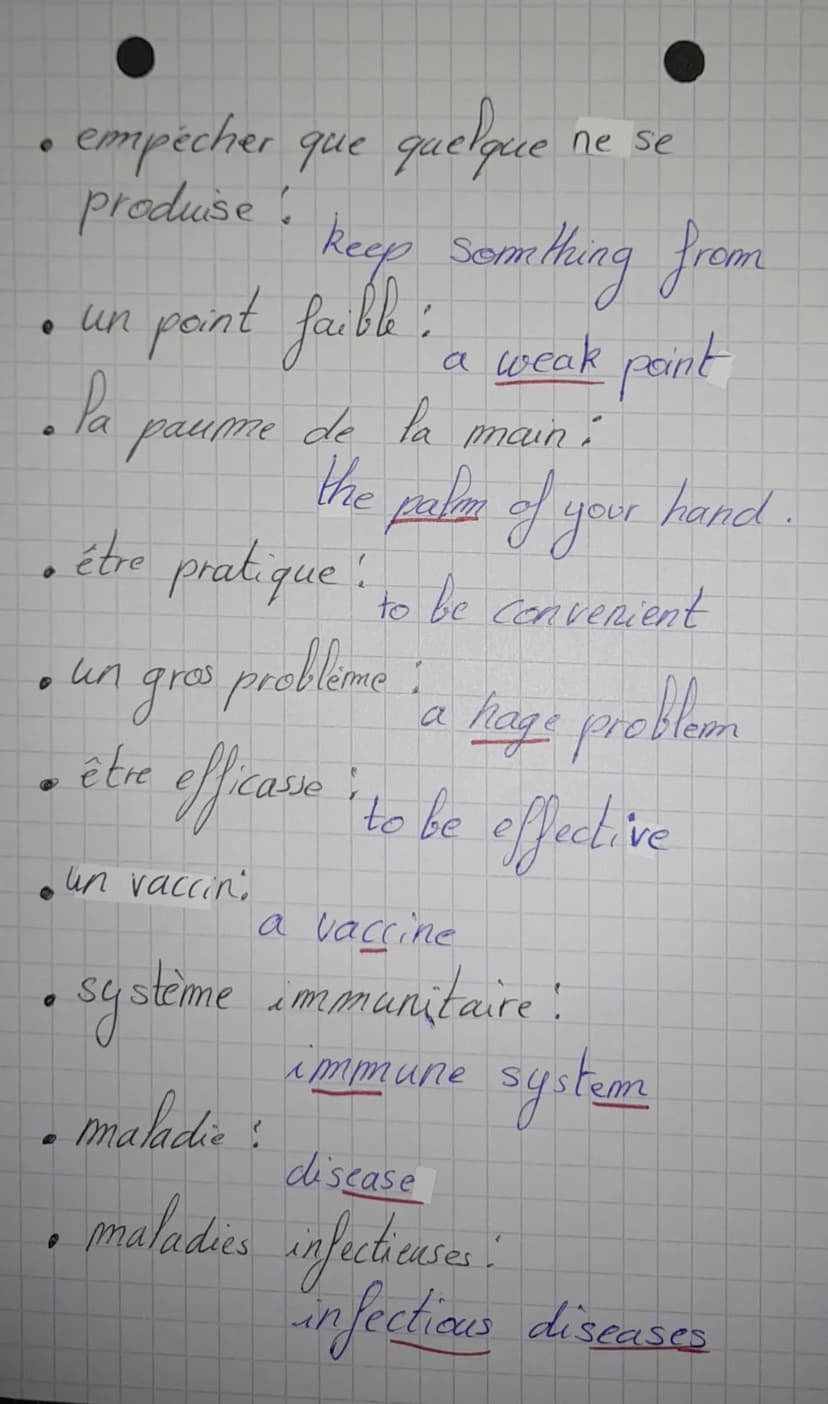 • empêcher que quelque ne se
produise :
keep somthing from
• un point faible :
a weak point
• la paume de la main :
the palm of your hand.
• être pratique :
to be convenient
• un gros problème :
a hage problem
• être efficasse :
to be effective
• un vaccin :
a vaccine
• système immunitaire :
immune system
• maladie :
disease
• maladies infectieuses :
infectious diseases